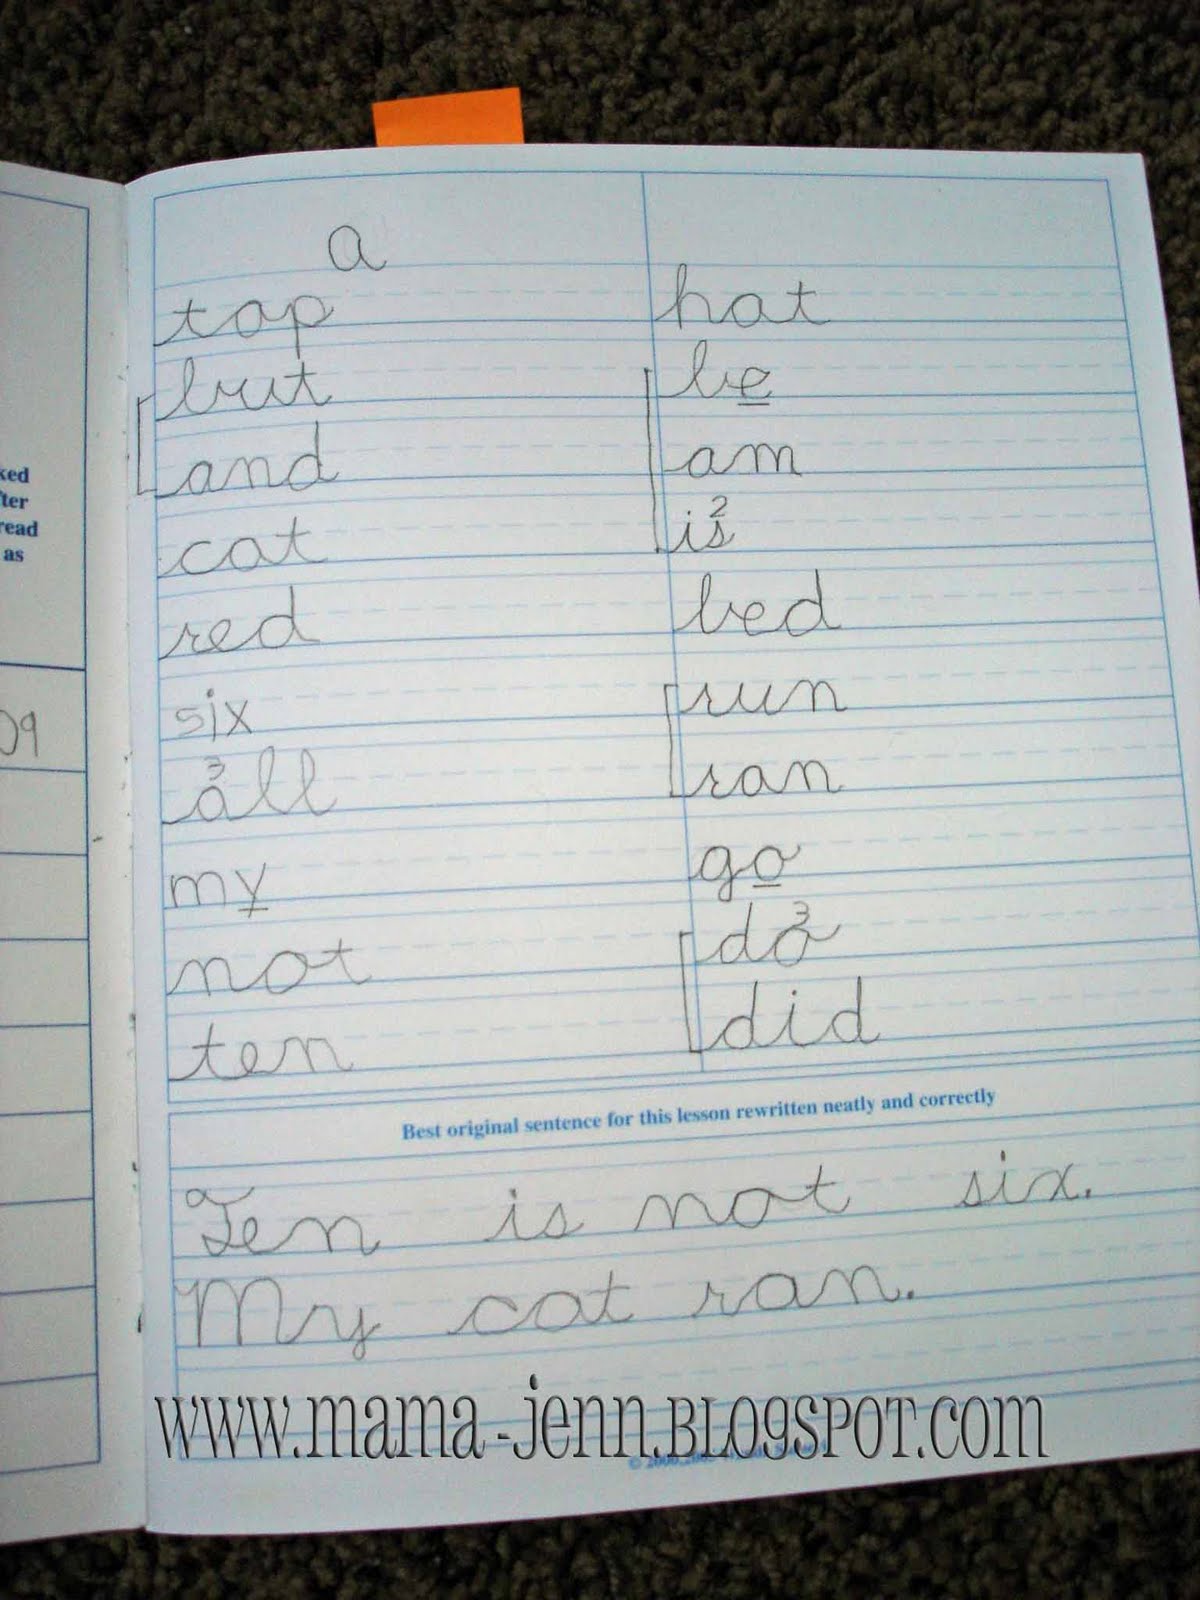 a
top
but
and
cat
red
six
3
all
my
not
ten
hat
be
am
2
is
bed
run
ran
go
3
do
did
Best original sentence for this lesson rewritten neatly and correctly
Ten is not six.
My cat ran.
www.mama-jenn.blogspot.com
ked
read
as
09